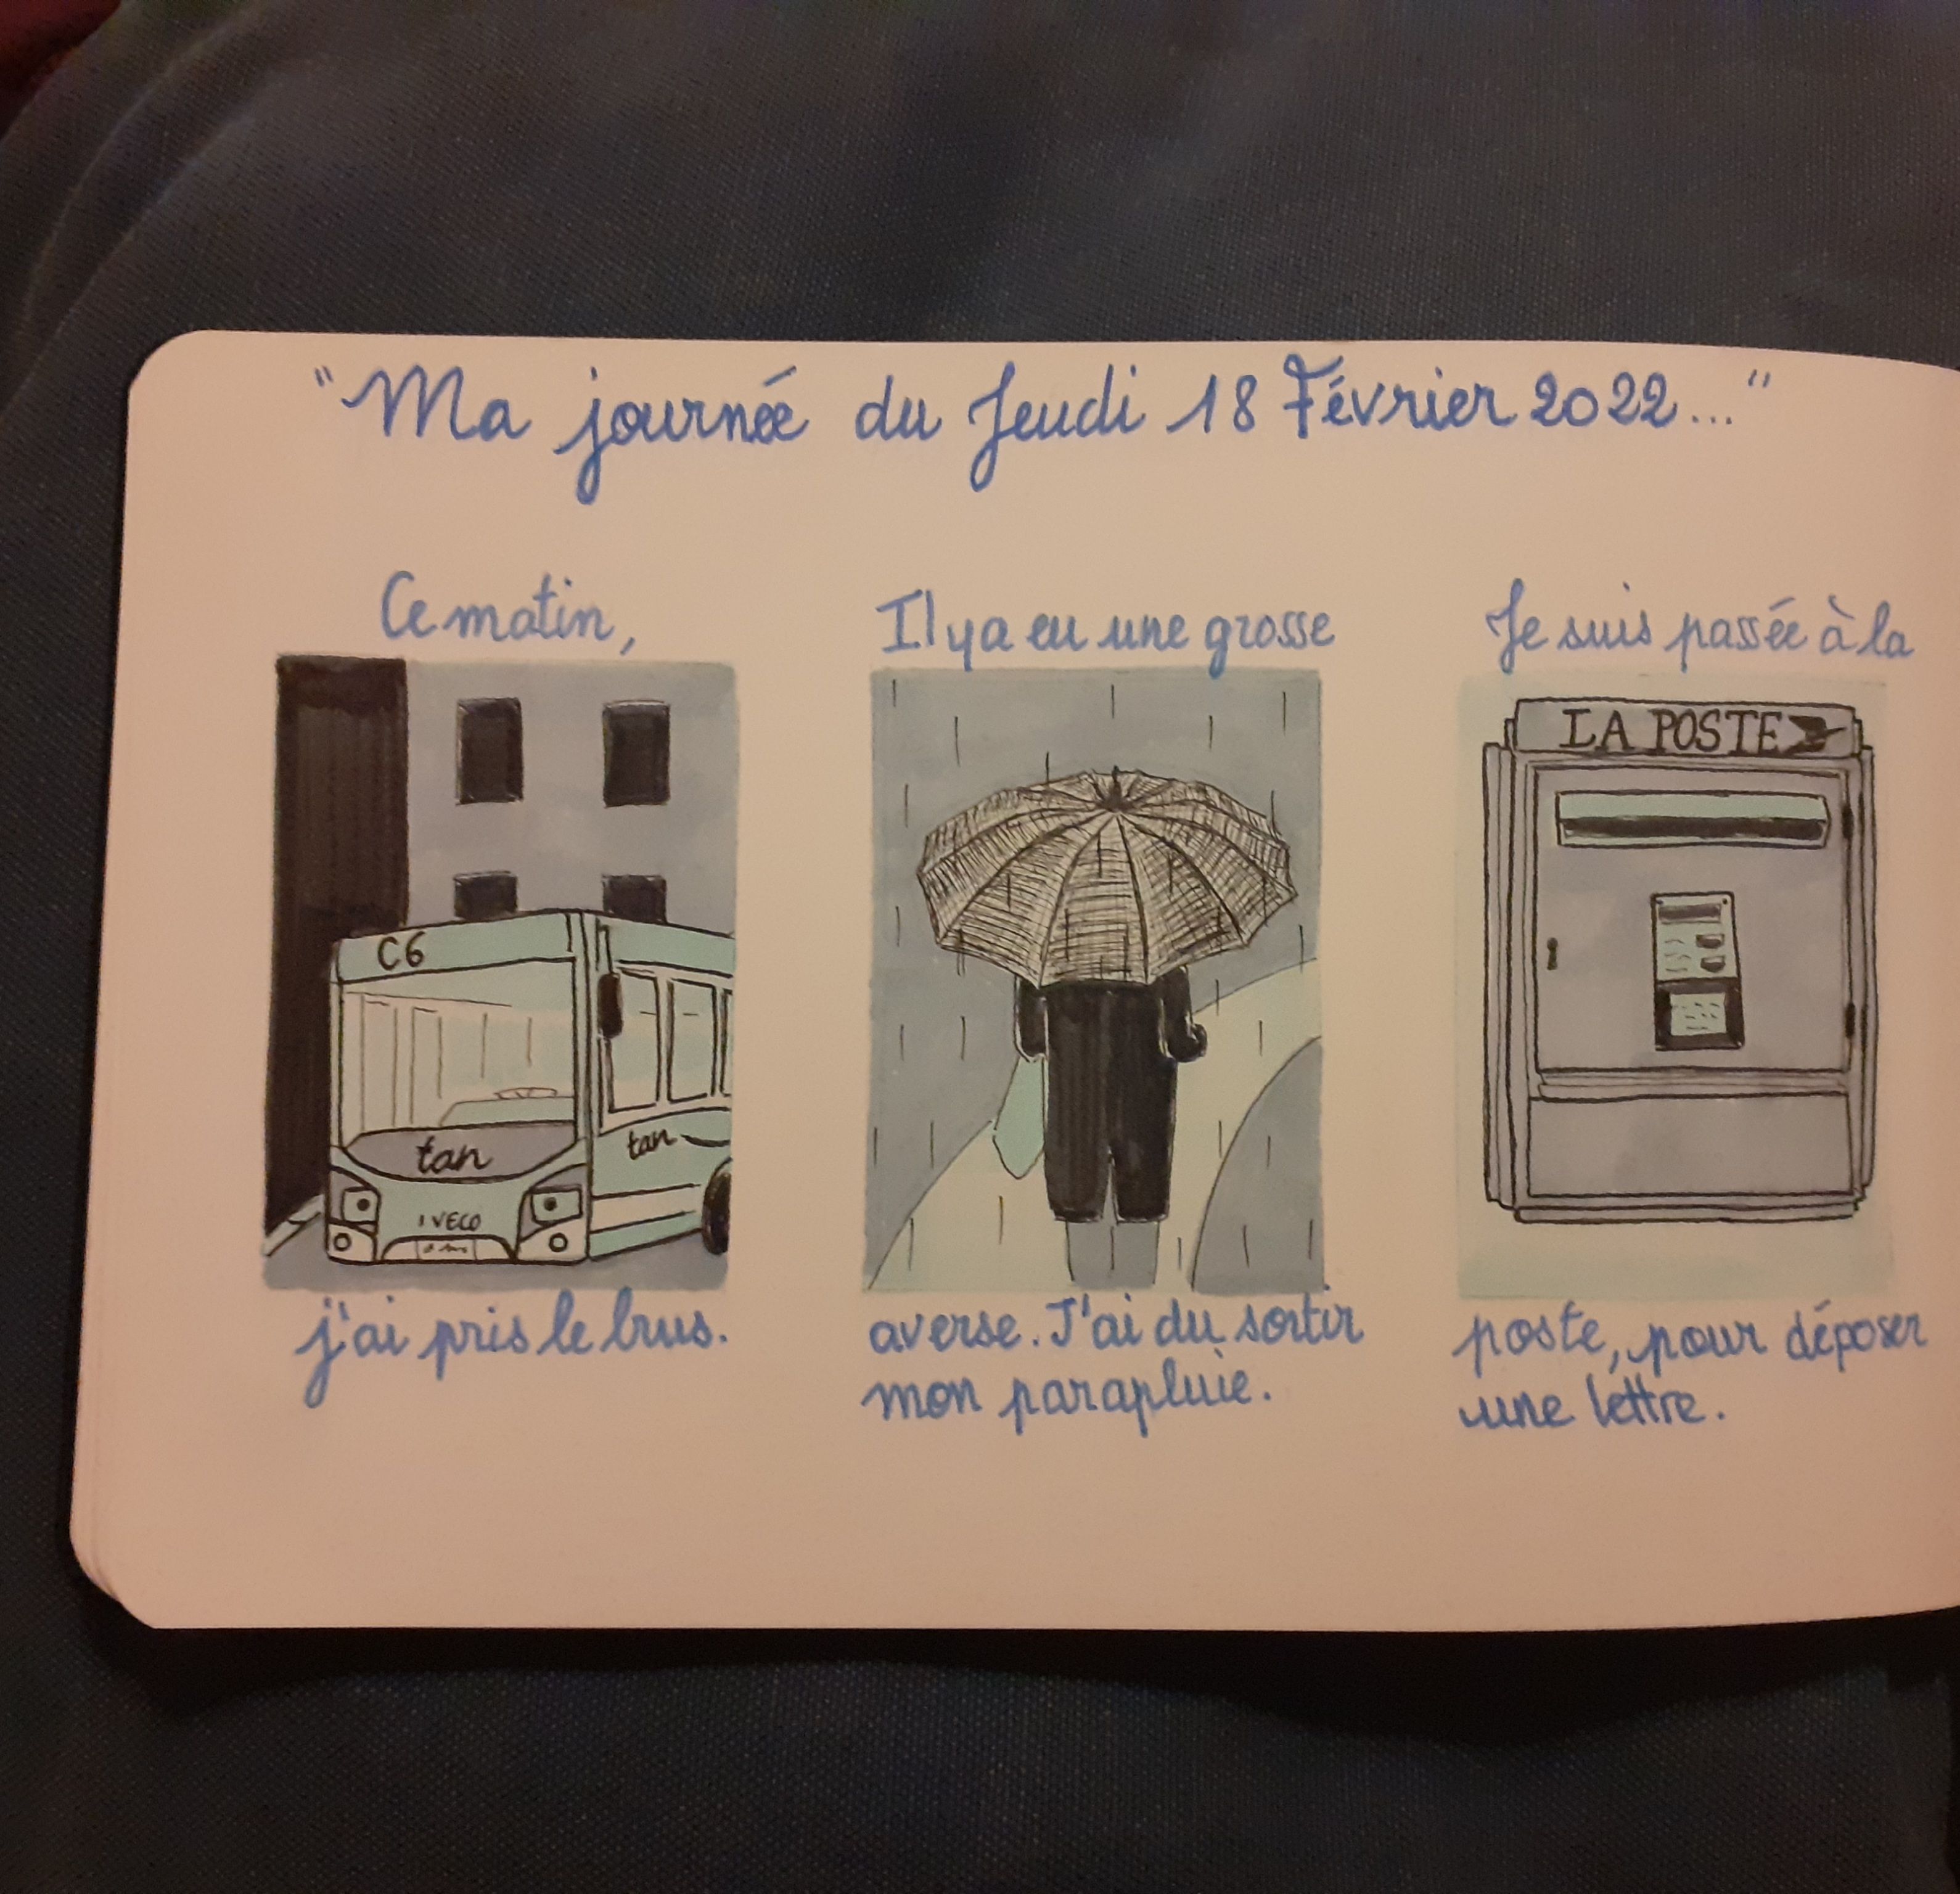 "Ma journée du Jeudi 18 Février 2022..."
Ce matin,
C6
tan
tan
IVECO
j'ai pris le bus.
Il y a eu une grosse
averse. J'ai du sortir
mon parapluie.
Je suis passée à la
LA POSTE
poste, pour déposer
une lettre.